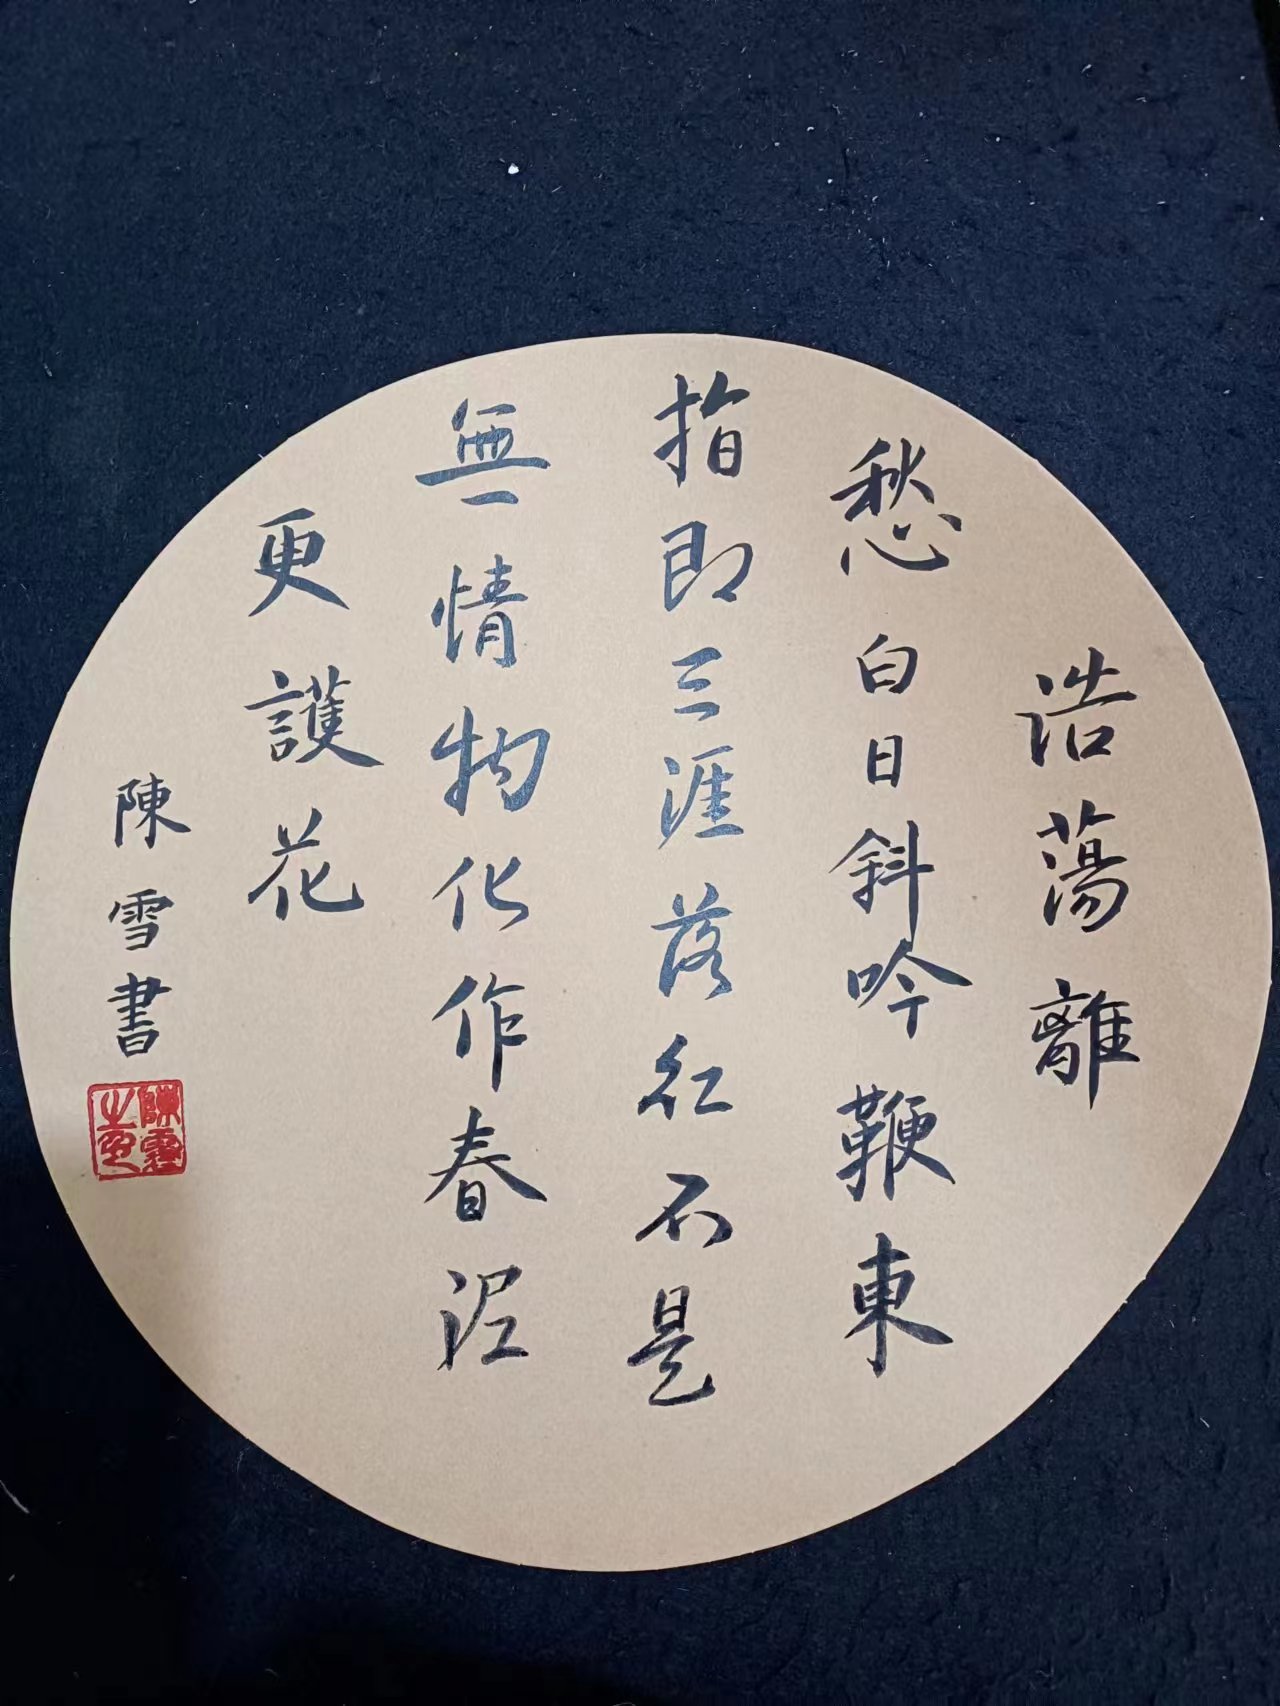 浩蕩離
愁白日斜吟鞭東
指即天涯落紅不是
無情物化作春泥
更護花
陳雪書
陳雪之印